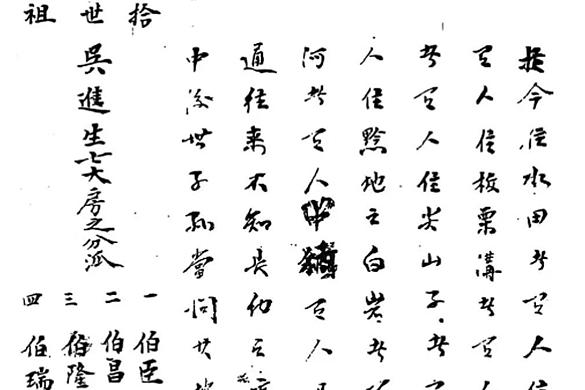 今住水田者有人住
有人住板栗溝者有
者有人住尖山子者
人住黔地之白岩者
河者有人有人
通往来不知長幼
中後世子孫當問其
拾世祖
吳進生七大房之分派
一伯臣
二伯昌
三伯隆
四伯瑞